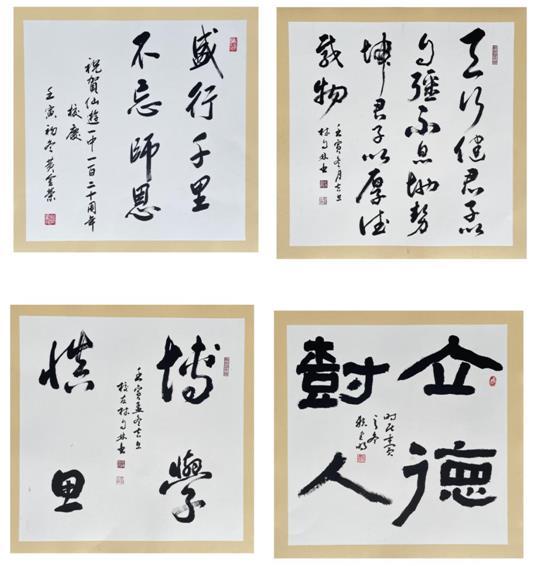 盛行千里
不忘師恩
祝賀仙遊一中一百二十周年
校慶
壬寅初冬黃金榮
天行健君子以
自彊不息地勢
坤君子以厚德
載物
壬寅冬月吉旦
博學
慎思
壬寅孟冬吉旦
校友林
立德
樹人
時在壬寅
之冬